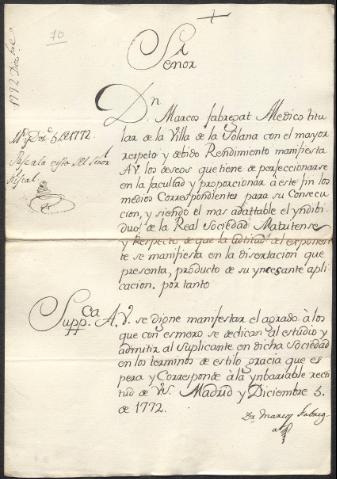 10
1772 Diz.bre
Sr
Senor
Dn. Marcos fabregat Medico titu
lar de la Villa de la Solana con el mayor
respeto y debido Rendimiento manifiesta
A V. los deseos que tiene de perfeccionarse
en la facultad y proporcionar à este fin los
medios Correspondientes para su Consecu
cion, y siendo el mas adattable el yndibi
duo de la Real Sociedad Matritense
y Respecto de que la Aptitud del exponente
te se manifiesta en la Disertacion que
presenta, producto de su yncesante apli
cacion. por tanto
5 de 1772.
Pase la esta del Señor
fiscal
Suppca. A. V. se digne manifestar el agrado à los
que con esmero se dedican al estudio y
admitir al Suplicante en dicha Sociedad
en los terminos de estilo, gracia que es
pera y Corresponde à la ynbariable recti
tud de Madrid y Diciembre 5.
de 1772.
Dr Marcos Fabreg
at